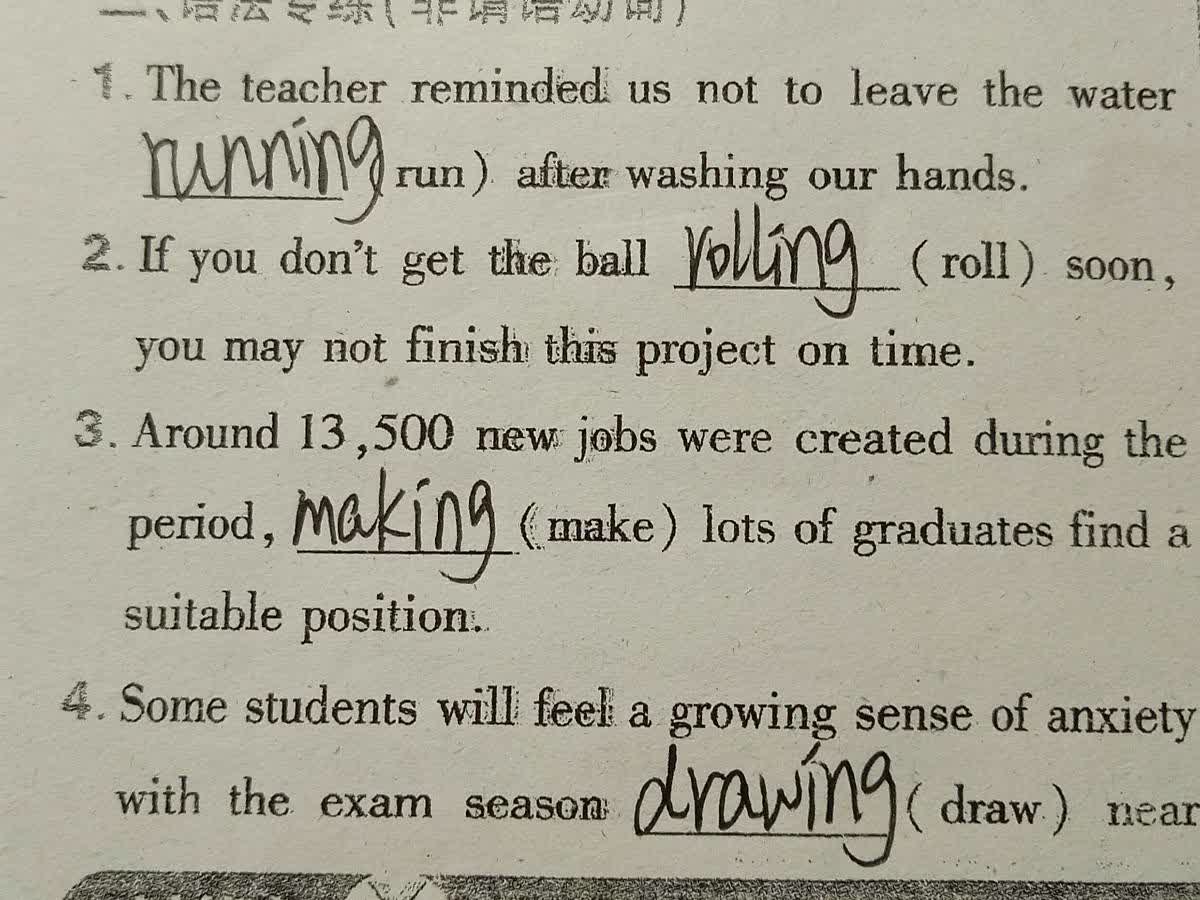 二、语法专练(非谓语动词)
1. The teacher reminded us not to leave the water
running run) after washing our hands.
2. If you don't get the ball rolling (roll) soon,
you may not finish this project on time.
3. Around 13,500 new jobs were created during the
period, making (make) lots of graduates find a
suitable position.
4. Some students will feel a growing sense of anxiety
with the exam season drawing (draw) near